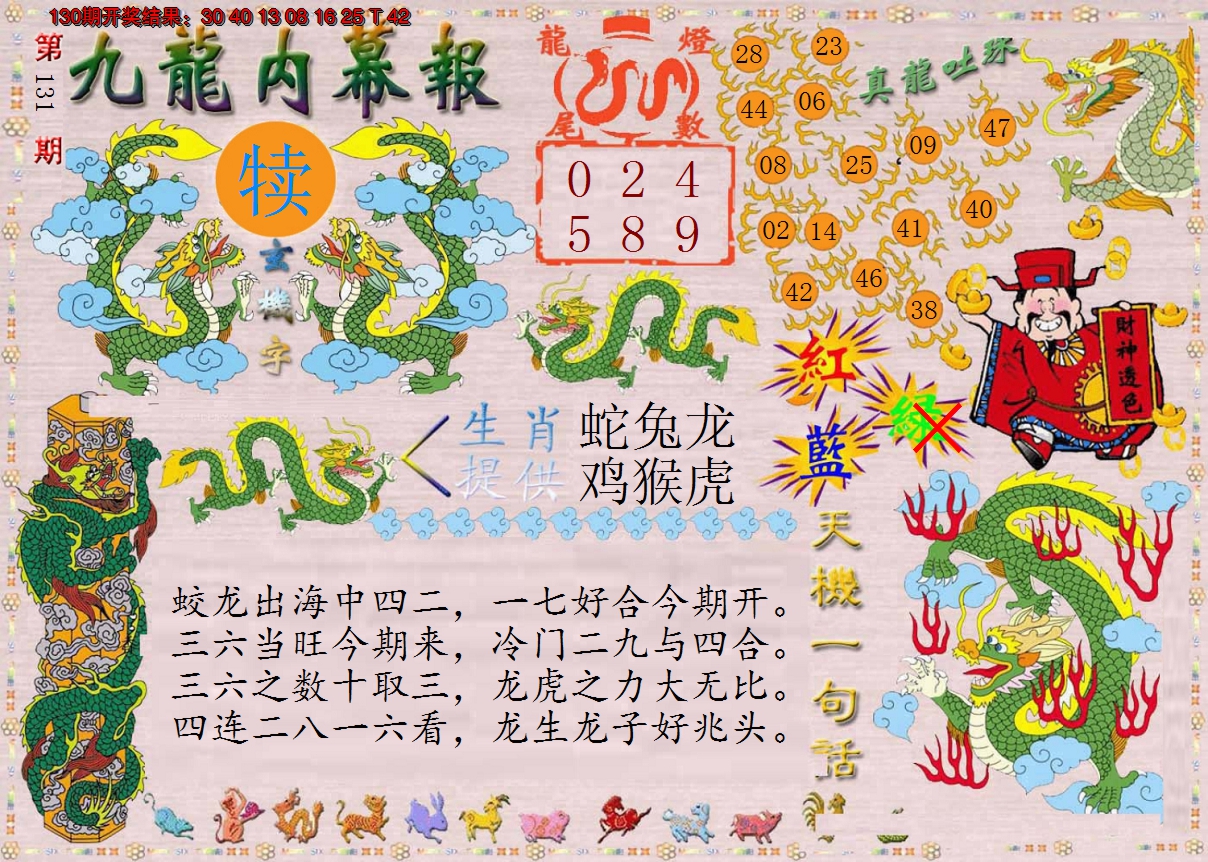 130期开奖结果：30 40 13 08 16 25 T 42
第131期
九龍内幕報
犊
玄機字
龍燈
尾數
0 2 4
5 8 9
真龍吐珠
28 23
44 06
09 47
08 25
02 14 41 40
42 46 38
紅
綠
藍
財神透色
生肖提供
蛇兔龙
鸡猴虎
天機一句话
蛟龙出海中四二，一七好合今期开。
三六当旺今期来，冷门二九与四合。
三六之数十取三，龙虎之力大无比。
四连二八一六看，龙生龙子好兆头。